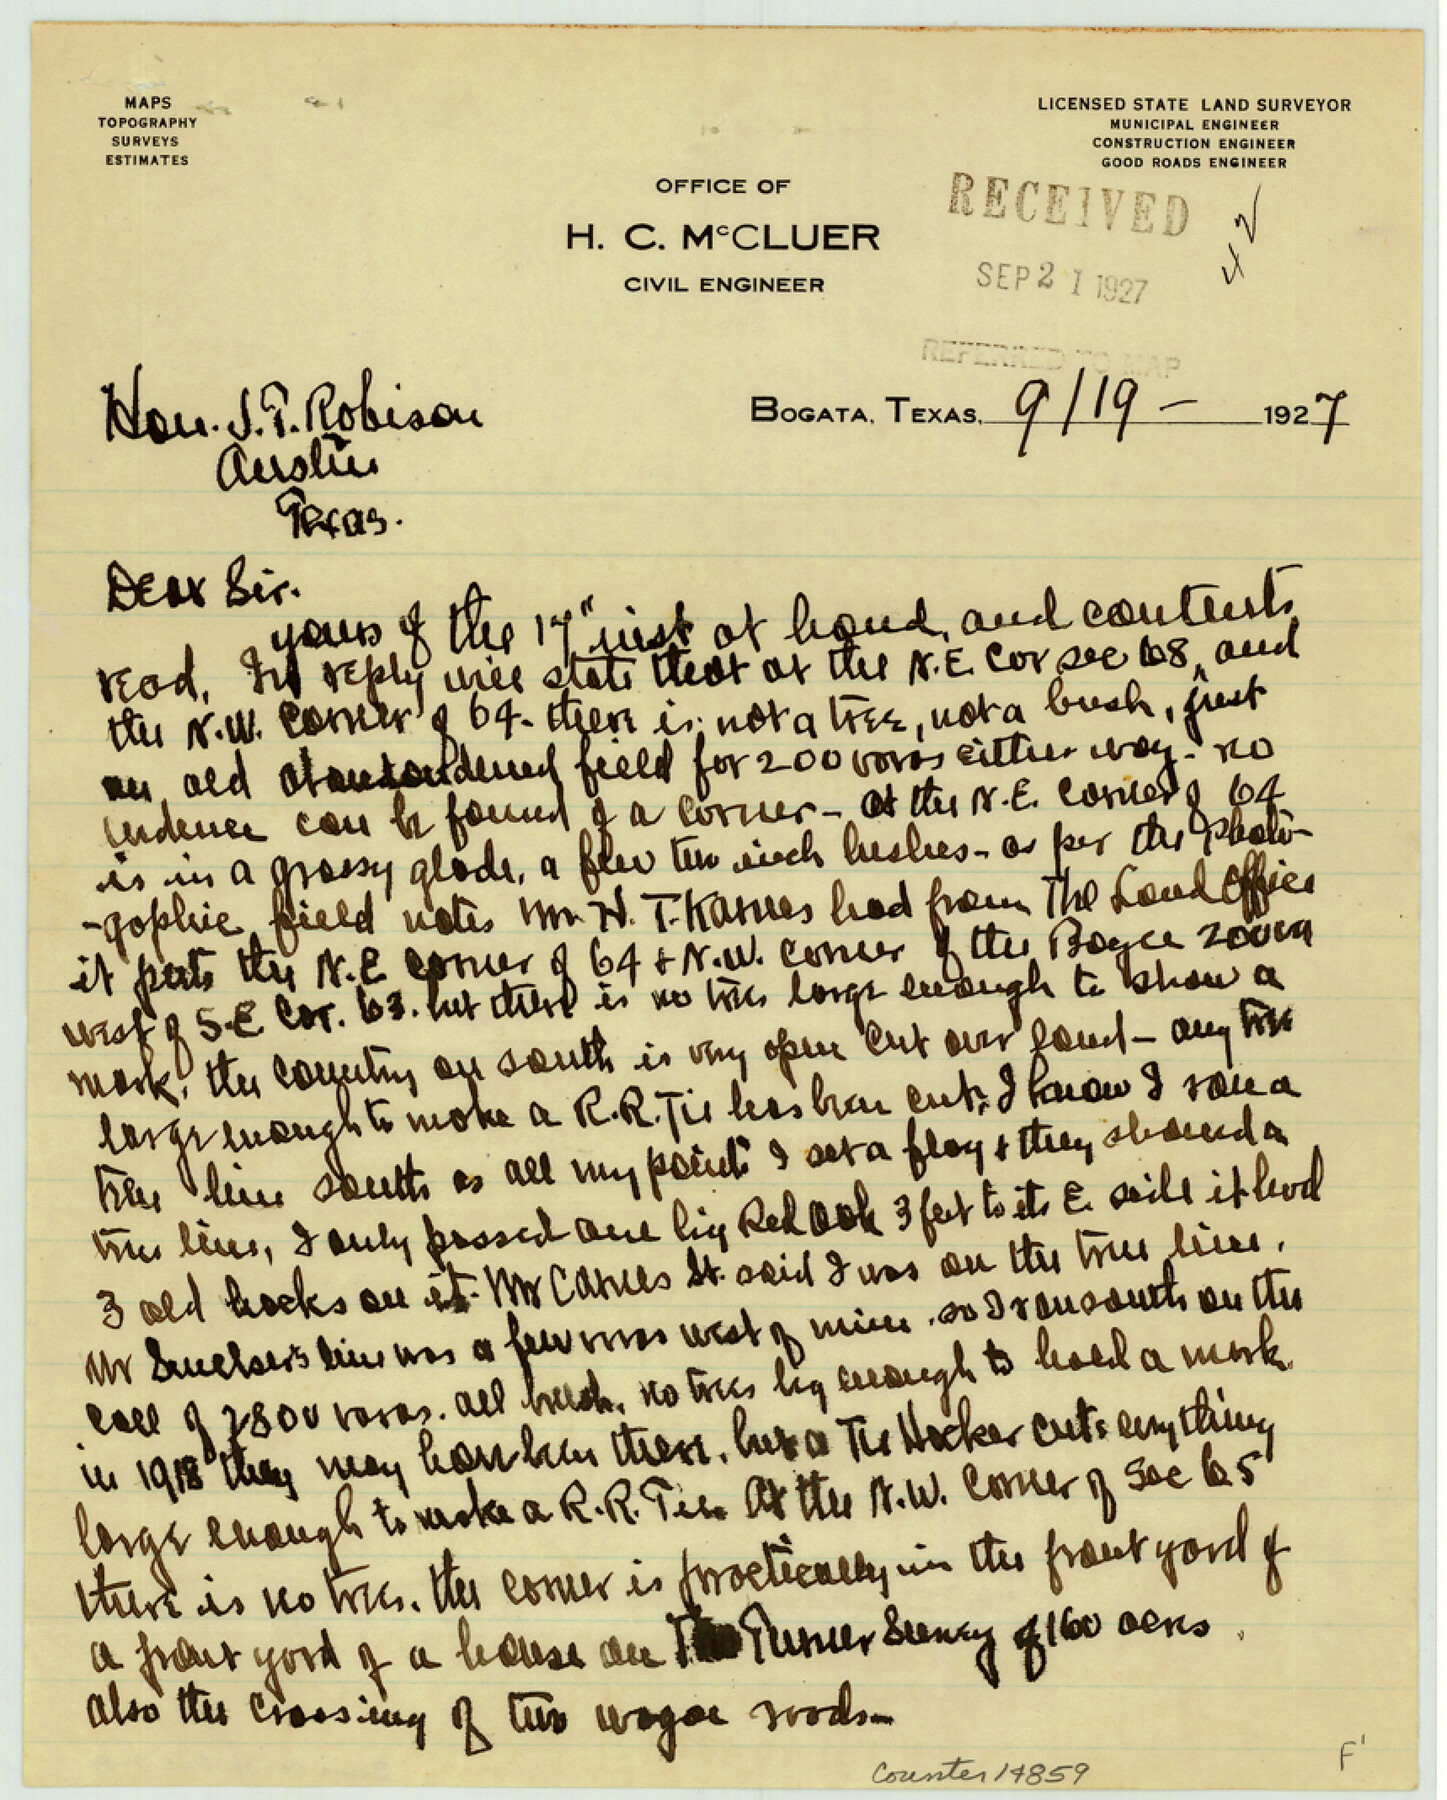 MAPS
TOPOGRAPHY
SURVEYS
ESTIMATES
LICENSED STATE LAND SURVEYOR
MUNICIPAL ENGINEER
CONSTRUCTION ENGINEER
GOOD ROADS ENGINEER
OFFICE OF
H. C. McCLUER
CIVIL ENGINEER
RECEIVED
SEP 21 1927
REFERRED TO MAP
42
BOGATA, TEXAS, 9/19 - 1927
Hon. J. T. Robison
Austin
Texas.
Dear Sir.
yours of the 17" inst at hand, and contents
read, In reply will state that at the N.E. Cor sec 68, and
the N.W. Corner of 64- there is not a tree, not a bush, just
an old abandoned field for 200 varas either way- no
evidence can be found of a corner- at the N.E. Corner of 64
is in a grassy glade, a few two inch bushes- as per the Photo-
-gophic field notes Mr. H. T. Karnes had from The Land Office
it puts the N.E. corner of 64 & N.W. corner of the Boyce 200 vrs
west of S.E. Cor. 63. but there is no trees large enough to show a
mark, the country on south is very open cut over land- any tree
large enough to make a R.R. Tie has been cut, I know I ran a
true line south as all my points I set a flag & they showed a
true line, I only passed one big Red Oak 3 feet to its E. side it had
3 old hacks on it- Mr Carnes Sr. said I was on the true line.
Mr Smelser's line was a few vras west of mine. so I ran south on the
call of 2800 varas. all brush. no trees big enough to hold a mark.
in 1918 they may have been there, but a Tie Hacker cuts everything
large enough to make a R.R. Tie. At the N.W. Corner of Sec 65
there is no trees. the corner is practically in the front yard of
a front yard of a house on The Turner Survey of 160 acrs.
also the crossing of two wagon roads-
Counter 14859
F'